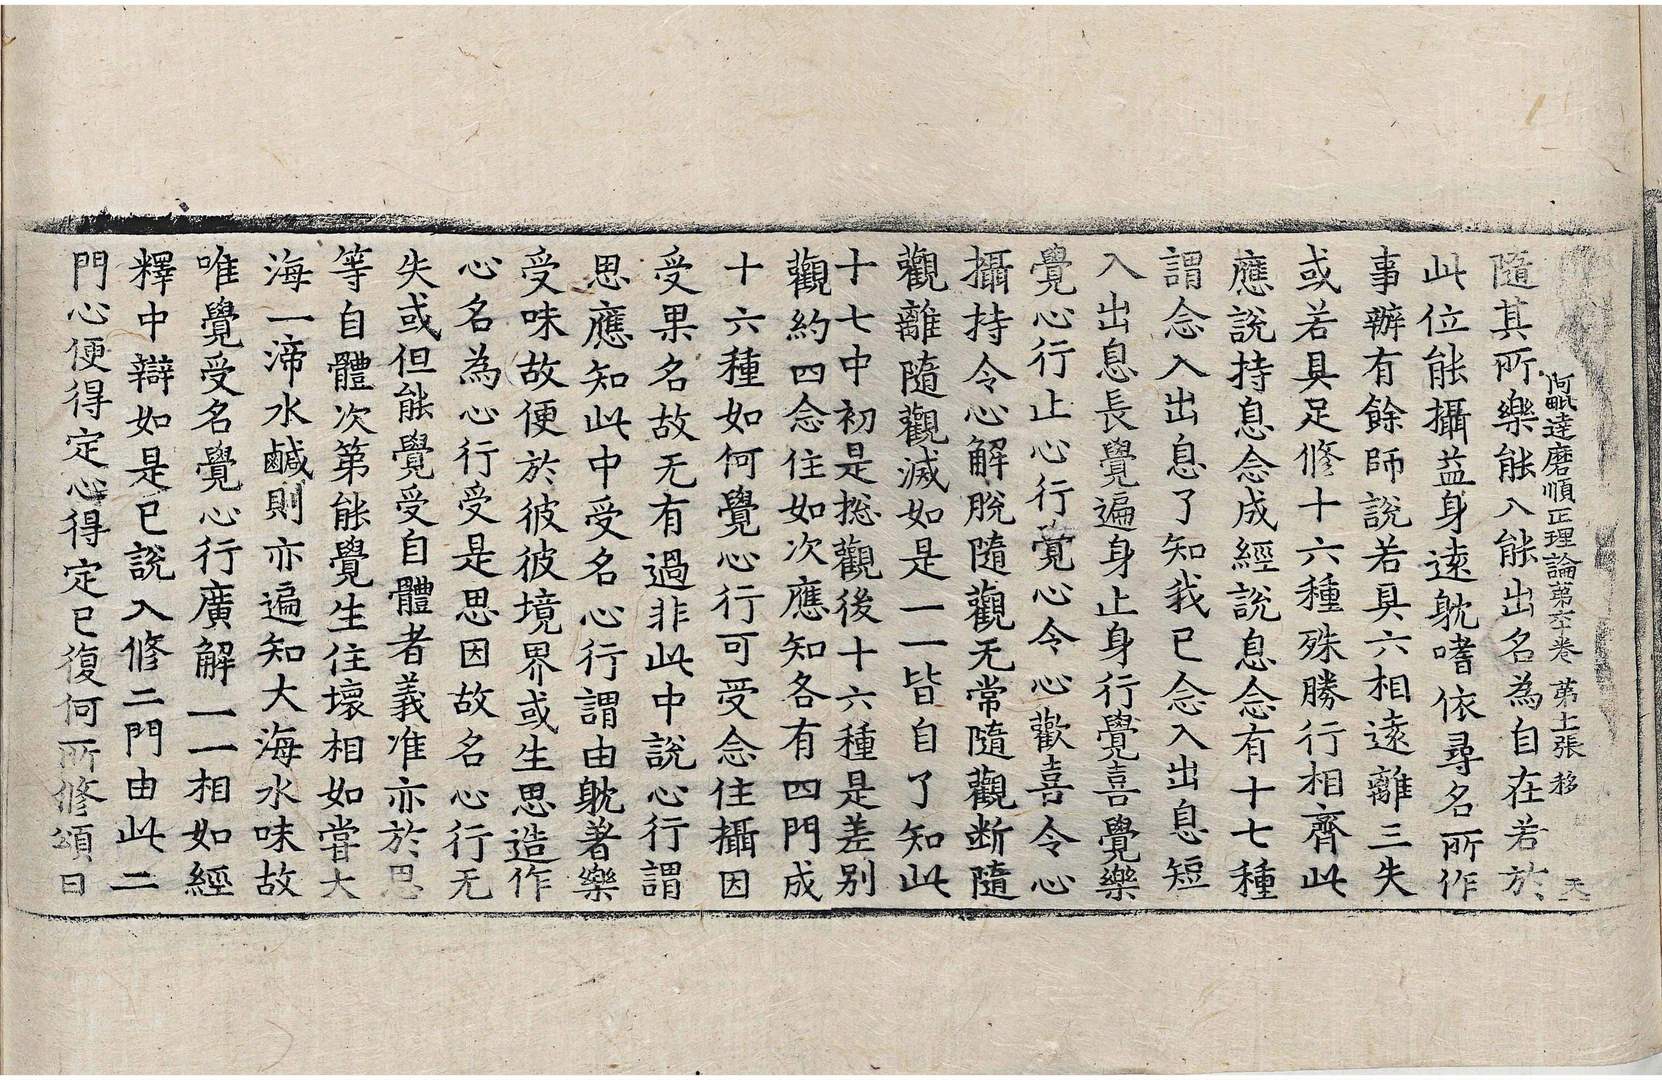 阿毗達磨順正理論第六十卷 第十張 移
隨其所樂能入能出名為自在若於
此位能攝益身遠躭嗜依尋名所作
事辦有餘師說若具六相遠離三失
或若具足修十六種殊勝行相齊此
應說持息念成經說息念有十七種
謂念入出息了知我已念入出息短
入出息長覺遍身止身行覺喜覺樂
覺心行止心行覺心令心歡喜令心
攝持令心解脫隨觀无常隨觀斷隨
觀離隨觀滅如是一一皆自了知此
十七中初是揔觀後十六種是差別
觀約四念住如次應知各有四門成
十六種如何覺心行可受念住攝因
受果名故无有過非此中說心行謂
思應知此中受名心行謂由躭著樂
受味故便於彼彼境界或生思造作
心名為心行受是思因故名心行无
失或但能覺受自體者義准亦於思
等自體次第能覺生住壞相如甞大
海一渧水鹹則亦遍知大海水味故
唯覺受名覺心行廣解一一相如經
釋中辯如是已說入修二門由此二
門心便得定心得定已復何所修頌曰